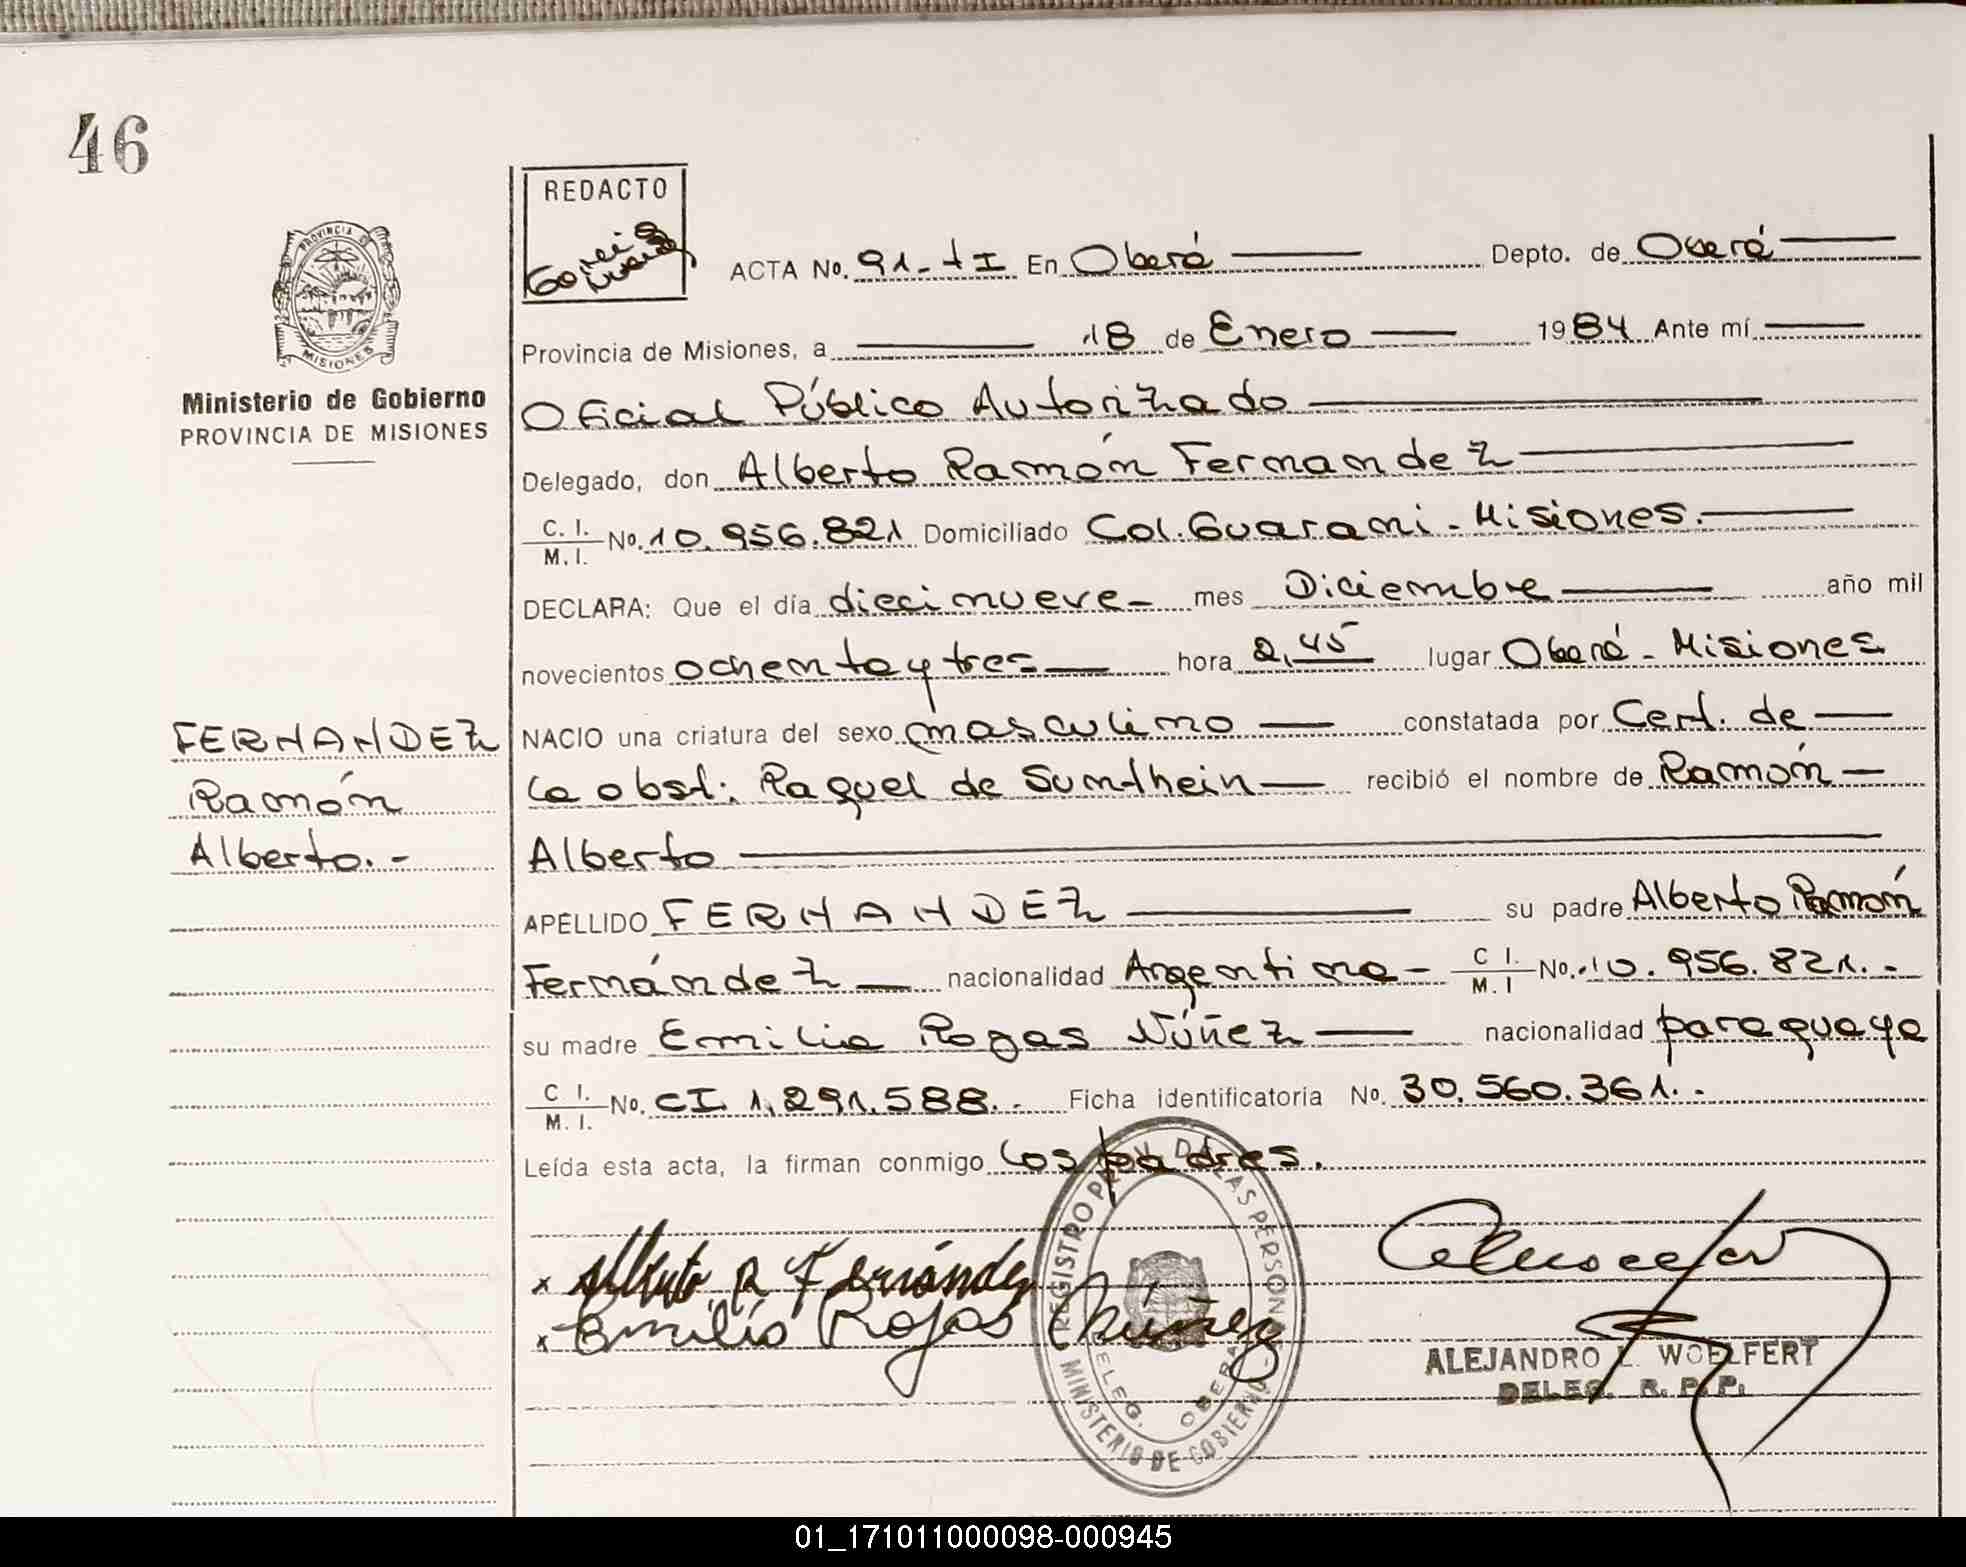 46
REDACTO
ACTA No. 91-tI En Oberá Depto. de Oberá
PROVINCIA DE
MISIONES
Provincia de Misiones, a 18 de Enero 1984 Ante mí
Ministerio de Gobierno
PROVINCIA DE MISIONES
Oficial Público Autorizado
Delegado, don Alberto Ramón Fernandez
C. I.
M. I. No. 10.956.821 Domiciliado Col. Guarani - Misiones.
DECLARA: Que el día diecinueve - mes Diciembre año mil
novecientos ochenta y tres hora 2,45 lugar Oberá - Misiones
FERNANDEZ
Ramón
Alberto.-
NACIO una criatura del sexo masculino constatada por Cert. de
la obst: Raquel de Sundhein recibió el nombre de Ramón
Alberto
APELLIDO FERNANDEZ su padre Alberto Ramón
Fernández nacionalidad Argentina - C I. M. I No. 10.956.821.-
su madre Emilia Rojas Núñez nacionalidad paraguaya
C I. M. I. No. CI 1.291.588.- Ficha identificatoria No. 30.560.361.-
Leída esta acta, la firman conmigo los padres.
x Alberto R Fernández
x Emilia Rojas Núñez
REGISTRO PROV. DE LAS PERSONAS
MINISTERIO DE GOBIERNO
DELEG. OBERA
ALEJANDRO L. WOELFERT
DELEG. R. P. P.
01_171011000098-000945